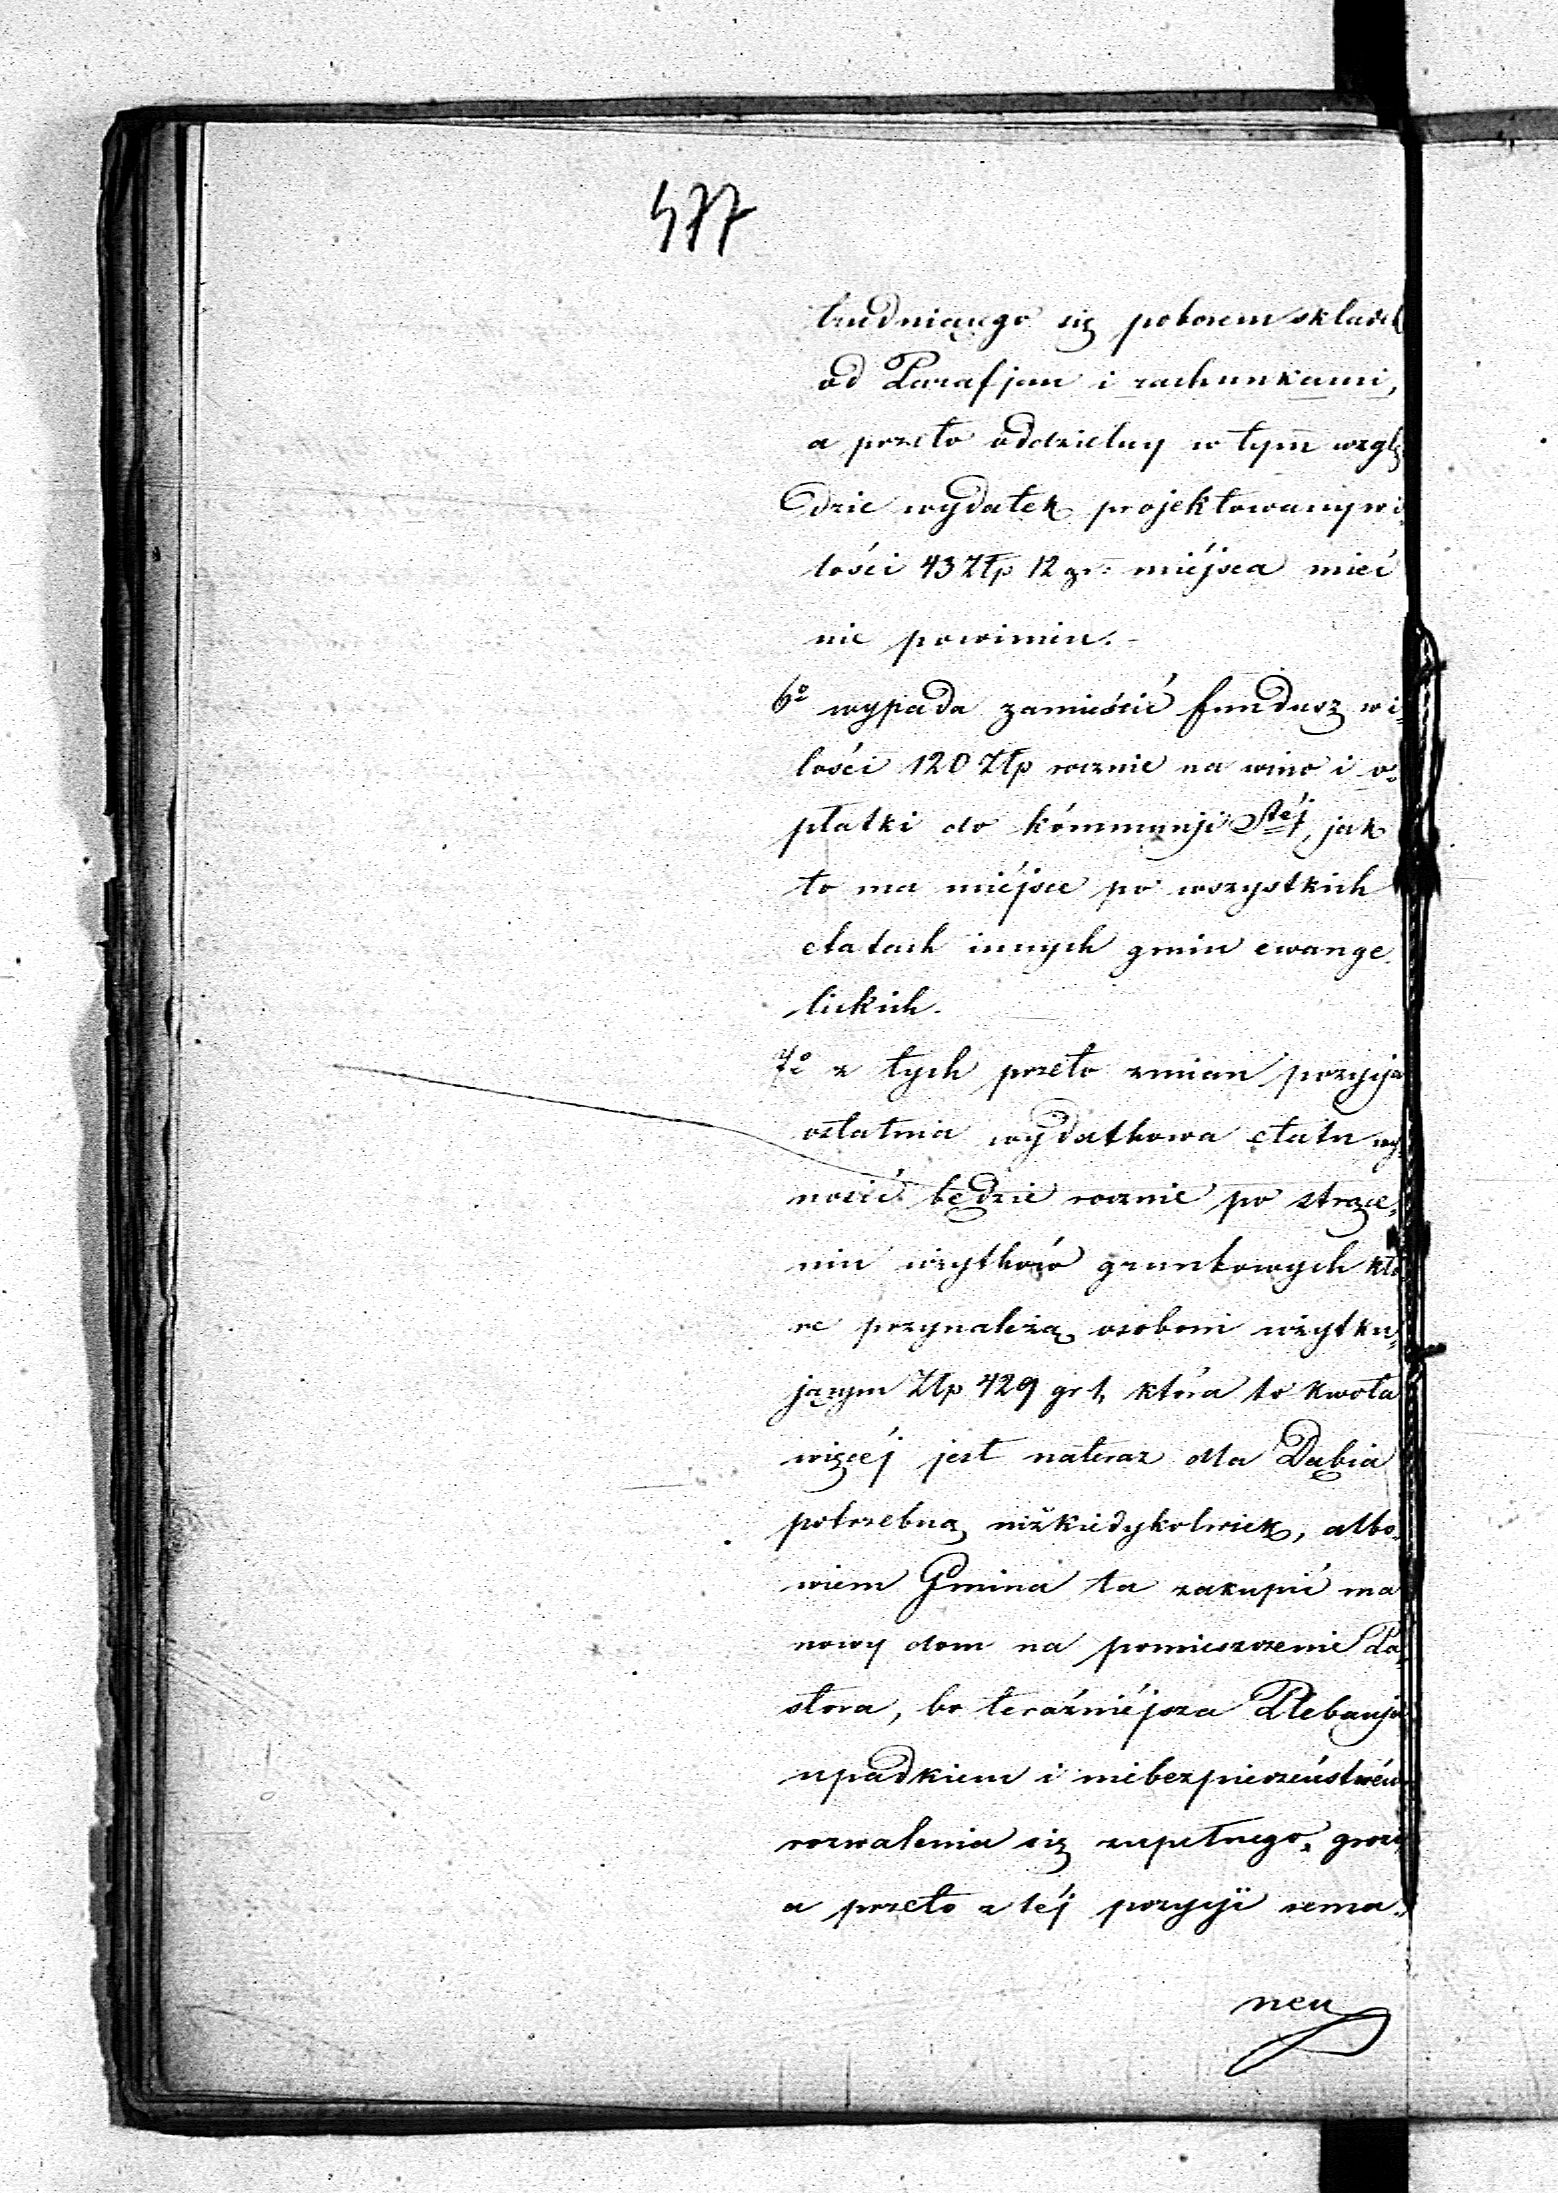 477
trudniącego się poborem składek
od Parafjan i rachunkami,
a przeto oddzielny w tym wzglę
dzie wydatek projektowany w i
lości 43 Złp 12 gr: miéjsca mieć
nie powinien.-
6º wypada zamieścić fundusz w i-
lości 120 Złp rocznie na wino i o-
płatki do kómmunji Stéj, jak
to ma miéjsce po wszystkich
etatach innych gmin ewange
lickich.
7º z tych przeto zmian pozycja
ostatnia wydatkowa etatu wy-
nosić będzie rocznie po strące-
niu użytków gruntowych któ
re przynależą osobom użytku-
jącym Złp 429 gr 1, która to kwota
więcéj jest nateraz dla Dąbia
potrzebną niż kiedykolwiek, albo-
wiem Gmina ta zakupić ma
nowy dom na pomieszczenie Pa-
stora, bo teraźniéjsza Plebanja
upadkiem i niebezpieczeństwém
rozwalenia się zupełnego, grozi
a przeto z téj pozycji rema-
nen